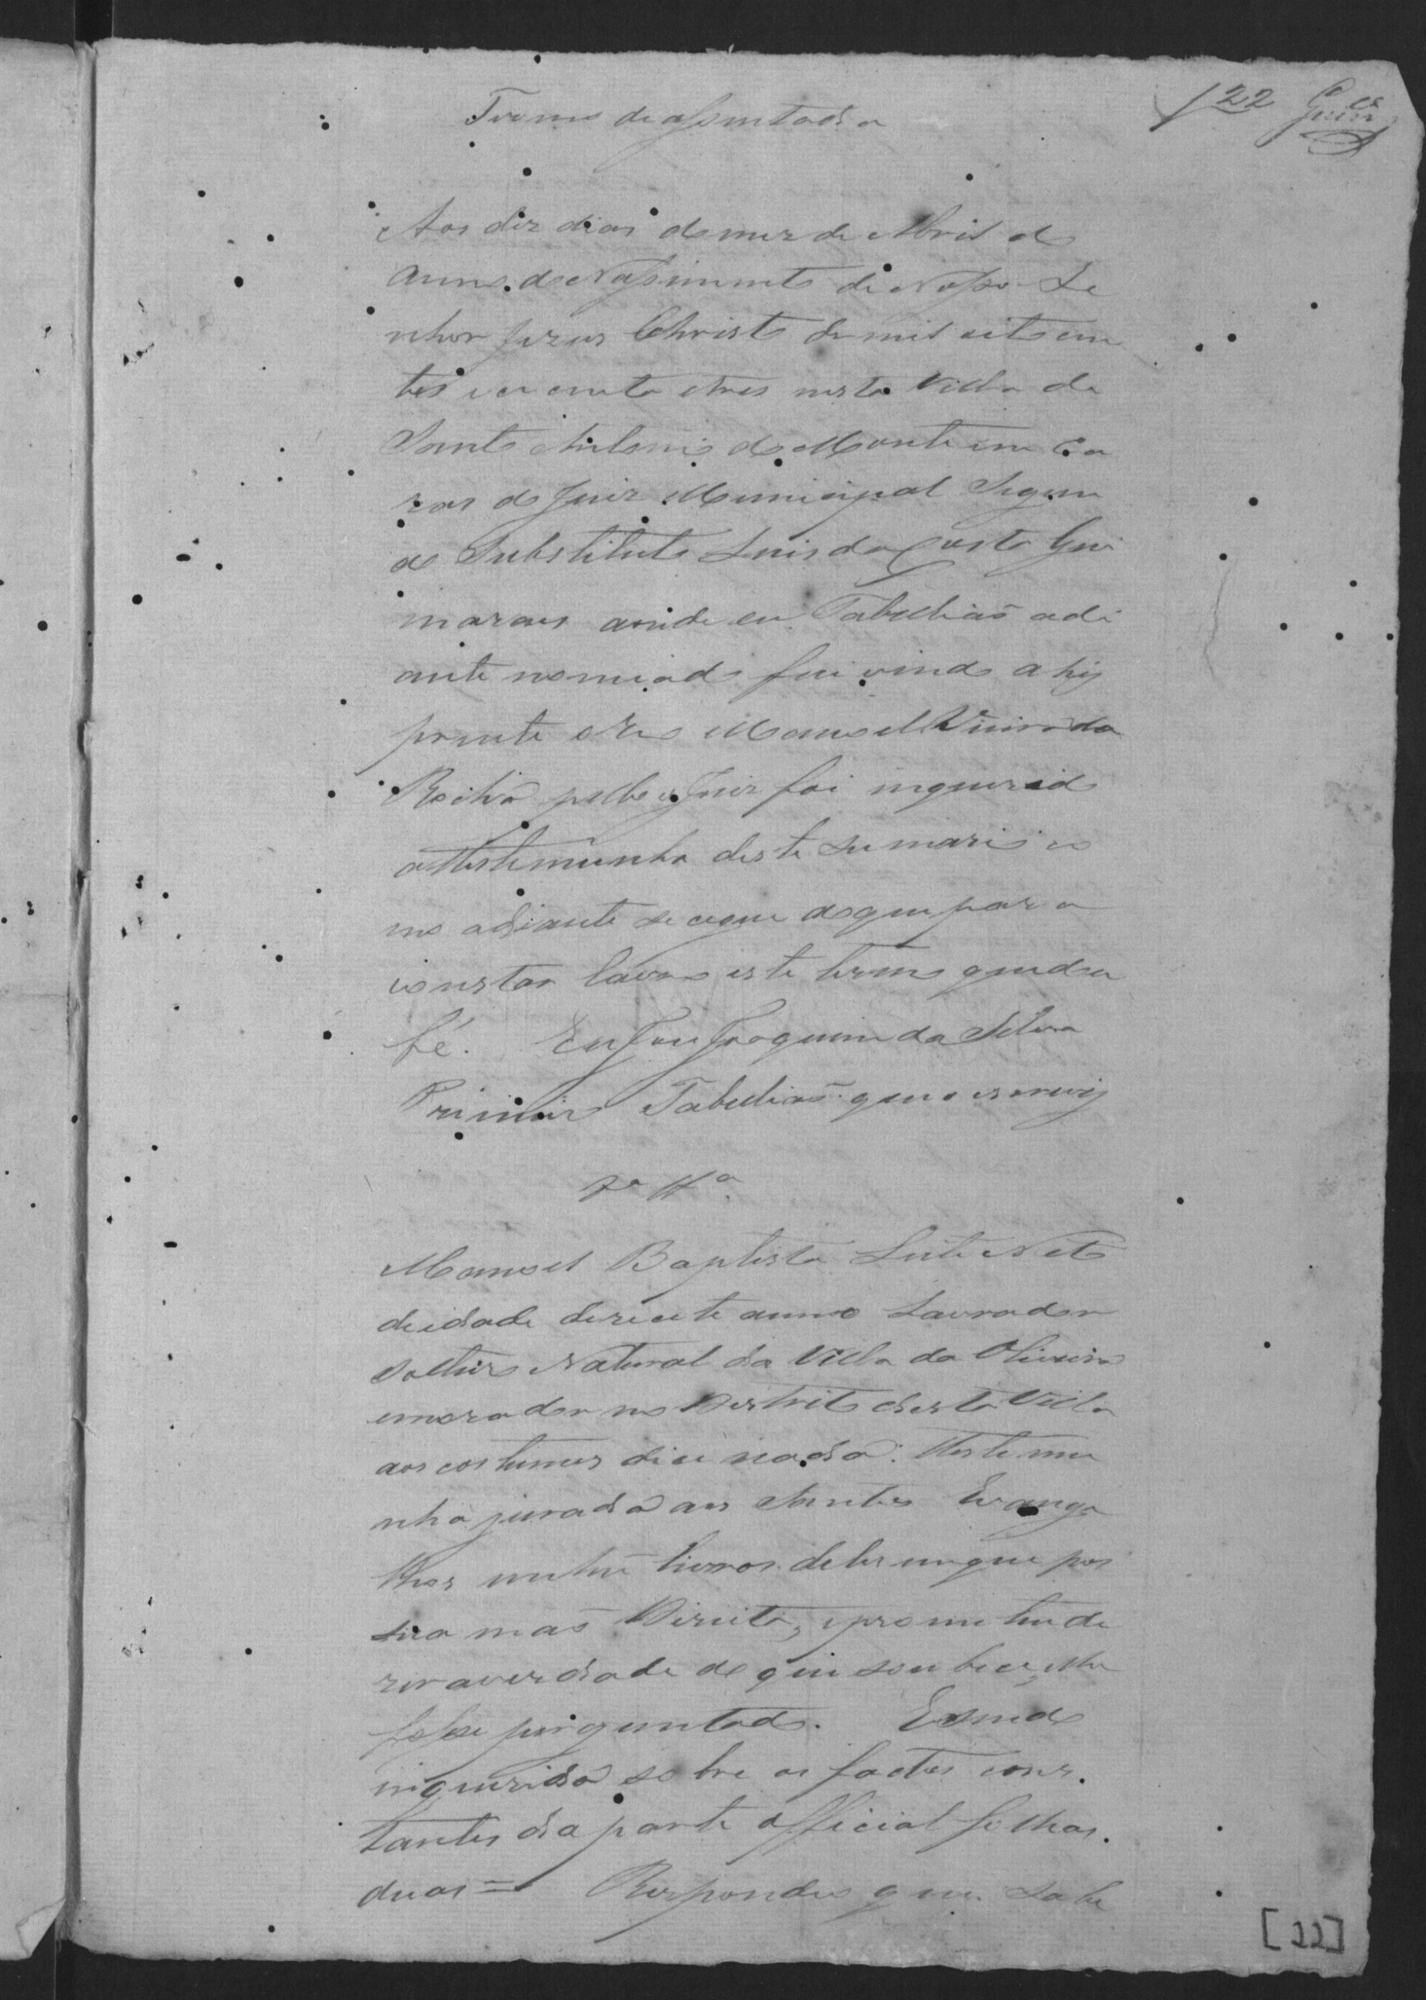 22
Termo de assentada
Aos dez dias do mez de Abril do
anno do Nassimento de Nosso Se
nhor Jezus Christo de mil oito cen
tos e secenta e tres nesta Villa de
Santo Antonio do Monte em Ca
zas do Juiz Municipal Segun
do Substituto Luis da Costa Gui
maraes aonde eu Tabeliaõ adi
ante nomiado fui vindo ahy
prezente o Reo Manoel Vieira da
Rocha pello Juiz foi inquerido
a testemunha deste sumario co
mo adiante se cegue do que para
constar lavro este termo que dou
fé. Eu Jose Joaquim da Silva
Primeiro Tabeliaõ que o escrevy
Manoel Baptista Leite Neto
de idade dezecete annos Lavrador
solteiro Natural da Villa da Oliveira
e morador no Destrito desta Villa
aos costumes dice nada: testemu
nha jurada aos Santos Evange
lhos em hũ livros delles em que pos
sua maõ Direita, e prometeu di
zer a verdade do que soubece e lhe
fosse perguntado. E sendo
inquirida sobre os factos cons
tantes da parte official folhas
duas = Respondeo que sabe
[22]